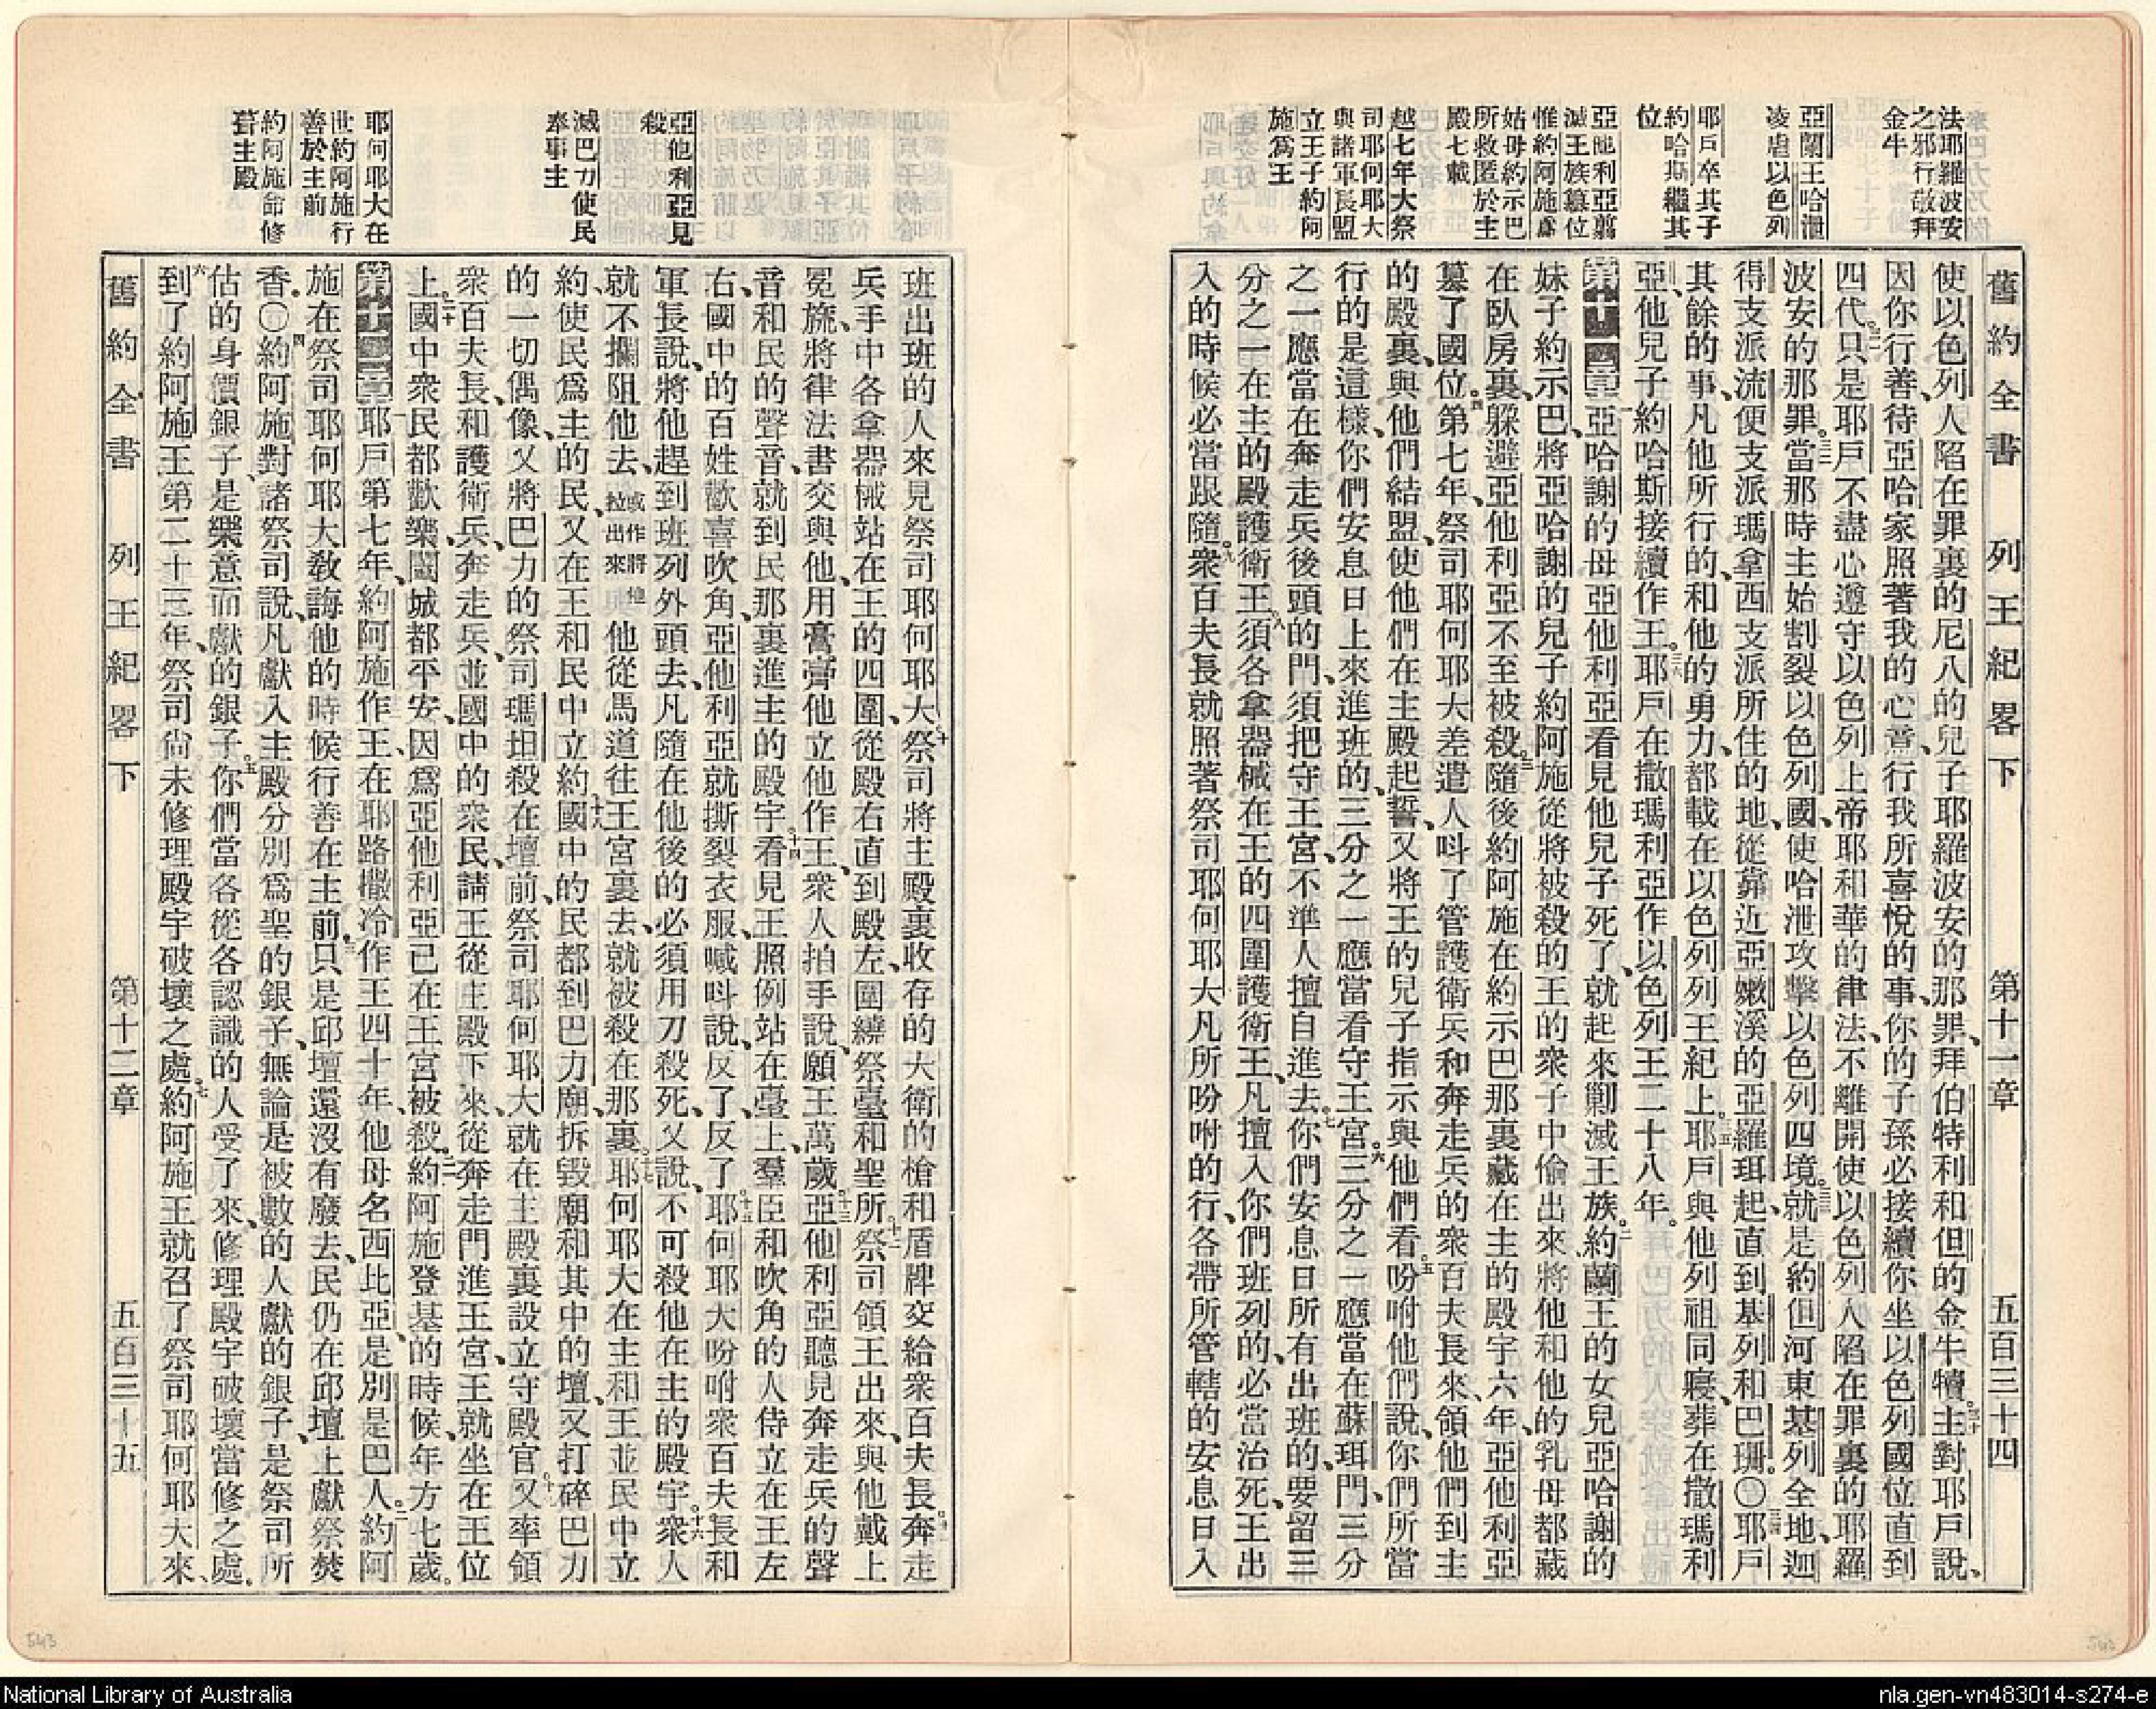 舊約全書　列王紀畧下　第十一章　五百三十四
法耶羅波安
之邪行敬拜
金牛
亞蘭王哈泄
凌虐以色列
耶戶卒其子
約哈斯繼其
位
亞他利亞翦
滅王族篡位
惟約阿施爲
姑母約示巴
所救匿於主
殿七載
越七年大祭
司耶何耶大
與諸軍長盟
立王子約阿
施爲王
使以色列人陷在罪裏的尼八的兒子耶羅波安的那罪、拜伯特利和但的金牛犢。三十主對耶戶說、
因你行善、待亞哈家照著我的心意、行我所喜悅的事、你的子孫必接續你坐以色列國位直到
四代。三一只是耶戶不盡心遵守以色列上帝耶和華的律法、不離開使以色列人陷在罪裏的耶羅
波安的那罪。三二當那時主始割裂以色列國、使哈泄攻擊以色列四境。三三就是約但河東基列全地、迦
得支派流便支派瑪拿西支派所住的地、從靠近亞嫩溪的亞羅珥起、直到基列和巴珊。〇三四耶戶
其餘的事、凡他所行的、和他的勇力、都載在以色列列王紀上。三五耶戶與他列祖同寢、葬在撒瑪利
亞、他兒子約哈斯接續作王。三六耶戶在撒瑪利亞作以色列王二十八年。
第十一章一亞哈謝的母亞他利亞看見他兒子死了、就起來剿滅王族。二約蘭王的女兒亞哈謝的
妹子約示巴、將亞哈謝的兒子約阿施從將被殺的王的衆子中偷出來、將他和他的乳母都藏
在臥房裏、躲避亞他利亞不至被殺。三隨後約阿施在約示巴那裏藏在主的殿宇六年、亞他利亞
篡了國位。四第七年、祭司耶何耶大差遣人呌了管護衞兵和奔走兵的衆百夫長來、領他們到主
的殿裏、與他們結盟、使他們在主殿起誓、又將王的兒子指示與他們看。五吩咐他們說、你們所當
行的是這樣、你們安息日上來進班的、三分之一應當看守王宮。六三分之一應當在蘇珥門、三分
之一應當在奔走兵後頭的門、須把守王宮、不準人擅自進去。七你們安息日所有出班的、要留三
分之二在主的殿護衞王。八須各拿器械在王的四圍護衞王、凡擅入你們班列的、必當治死、王出
入的時候必當跟隨。九衆百夫長就照著祭司耶何耶大凡所吩咐的行、各帶所管轄的安息日入
亞他利亞見
殺
滅巴力使民
奉事主
耶何耶大在
世約阿施行
善於主前
約阿施命修
葺主殿
班出班的人來見祭司耶何耶大、十祭司將主殿裏收存的大衞的槍和盾牌交給衆百夫長。十一奔走
兵、手中各拿器械、站在王的四圍、從殿右直到殿左、圍繞祭臺和聖所。十二祭司領王出來、與他戴上
冕旒、將律法書交與他、用膏膏他立他作王、衆人拍手說、願王萬歲。十三亞他利亞聽見奔走兵的聲
音和民的聲音、就到民那裏進主的殿宇。十四看見王照例站在臺上、羣臣和吹角的人侍立在王左
右、國中的百姓歡喜吹角、亞他利亞就撕裂衣服、喊呌說、反了、反了。十五耶何耶大吩咐衆百夫長和
軍長說、將他趕到班列外頭去、凡隨在他後的必須用刀殺死、又說、不可殺他在主的殿宇。十六衆人
就不攔阻他去、或作將他拉出來他從馬道往王宮裏去、就被殺在那裏。十七耶何耶大在主和王並民中立
約、使民爲主的民、又在王和民中立約。十八國中的民都到巴力廟、拆毀廟和其中的壇、又打碎巴力
的一切偶像、又將巴力的祭司瑪坦殺在壇前、祭司耶何耶大就在主殿裏設立守殿官。十九又率領
衆百夫長、和護衞兵、奔走兵、並國中的衆民、請王從主殿下來、從奔走門進王宮、王就坐在王位
上。二十國中衆民都歡樂、闔城都平安、因爲亞他利亞已在王宮被殺。二一約阿施登基的時候、年方七歲。
第十二章一耶戶第七年、約阿施作王、在耶路撒冷作王四十年、他母名西比亞、是別是巴人。二約阿
施在祭司耶何耶大教誨他的時候行善在主前。三只是邱壇還沒有廢去、民仍在邱壇上獻祭焚
香。〇四約阿施對諸祭司說、凡獻入主殿分別爲聖的銀子、無論是被數的人獻的銀子、是祭司所
估的身價銀子、是樂意而獻的銀子。五你們當各從各認識的人受了來、修理殿宇破壞當修之處。
六到了約阿施王第二十三年、祭司尚未修理殿宇破壞之處。七約阿施王就召了祭司耶何耶大來、
舊約全書　列王紀畧下　第十二章　五百三十五
543
543
National Library of Australia
nla.gen-vn483014-s274-e